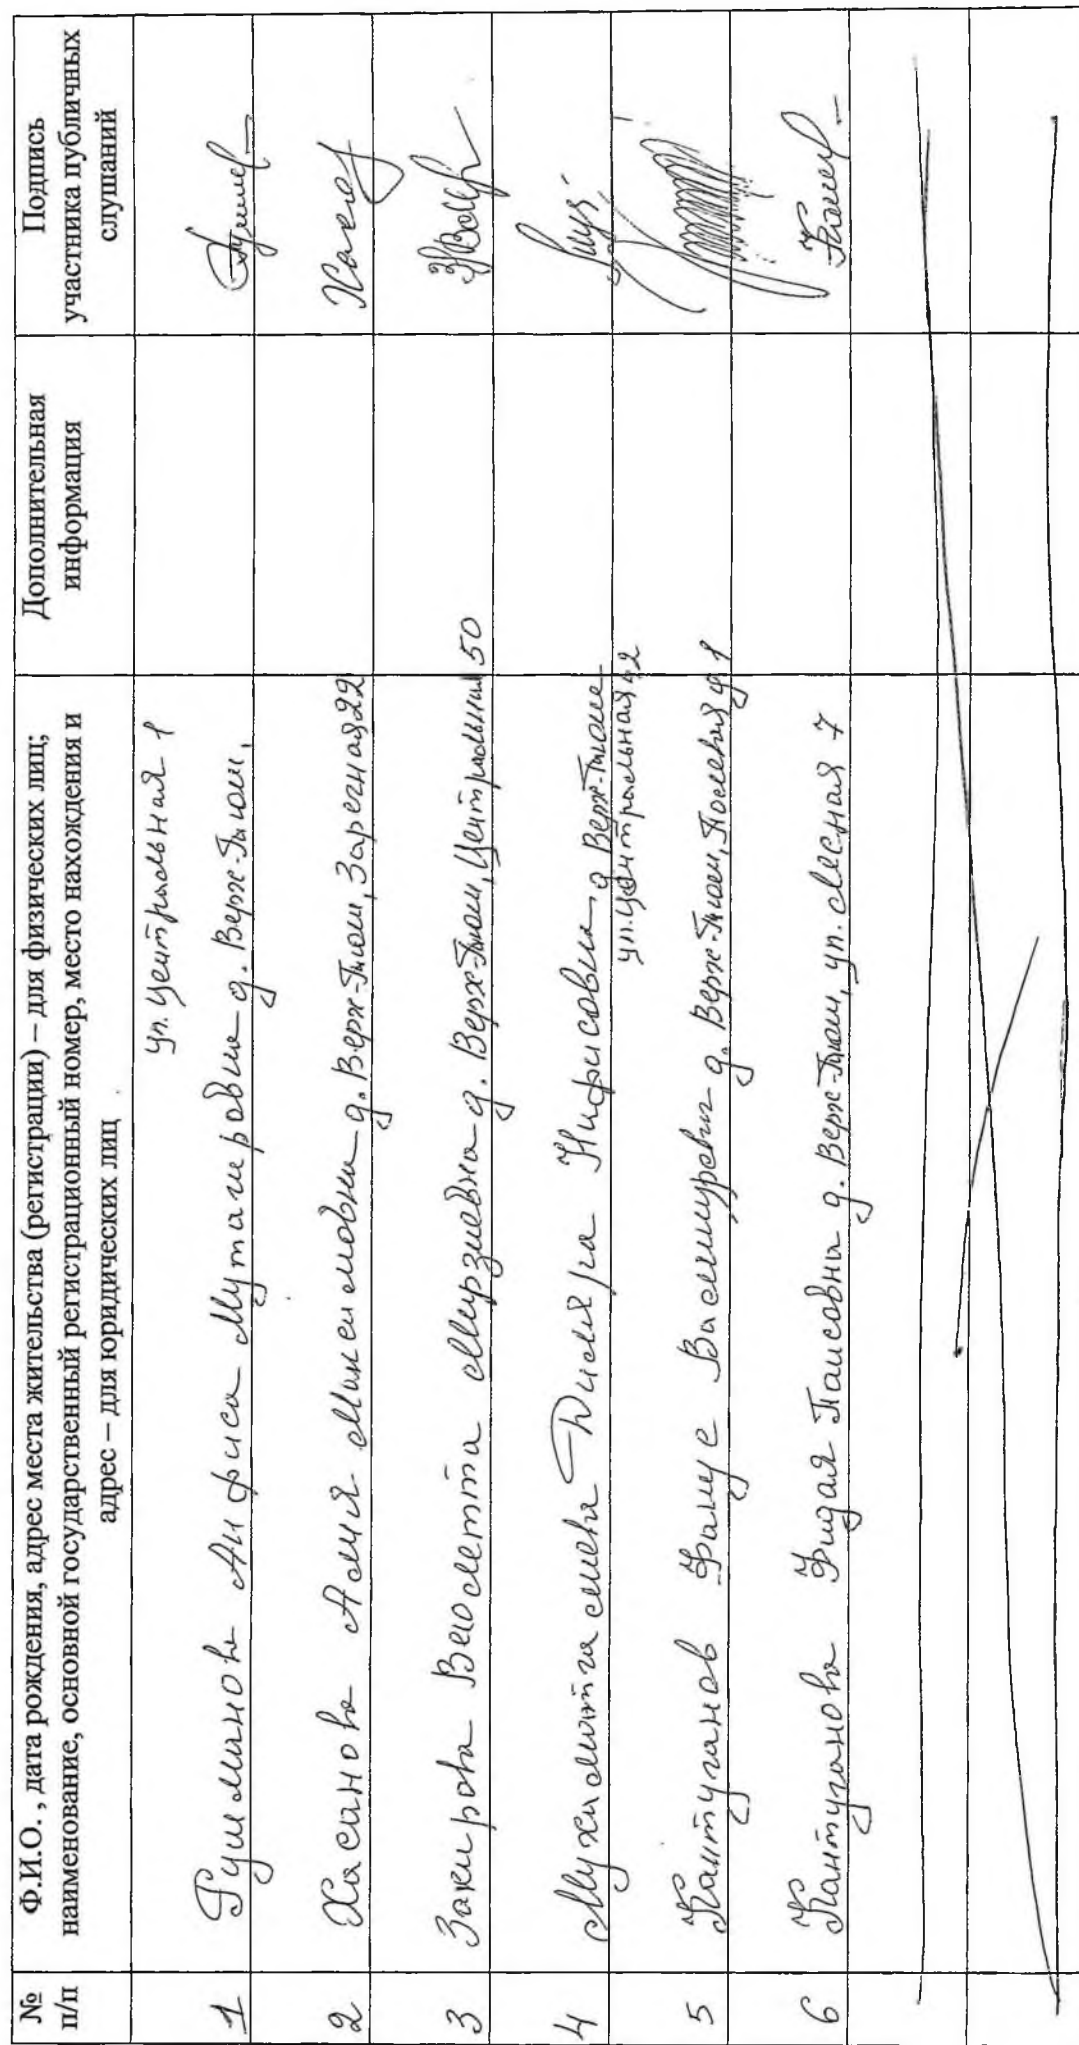 № п/п
Ф.И.О. , дата рождения, адрес места жительства (регистрации) – для физических лиц;
наименование, основной государственный регистрационный номер, место нахождения и
адрес – для юридических лиц
Дополнительная
информация
Подпись
участника публичных
слушаний
ул. Центральная 1
1 Анфиса д. Верх-Тюш,
2 Хасанова Максимовна д. Верх-Тюш, Заречная 22
3 Закирова Виолетта Мирзиевна д. Верх-Тюш, Центральная 50
4 Диляра Нафисовна д. Верх-Тюше
ул. Центральная 42
5 Кантуганов Фанус д. Верх-Тюш, Полевая д 1
6 Кантуганова Фидая д. Верх-Тюш, ул. Лесная 7